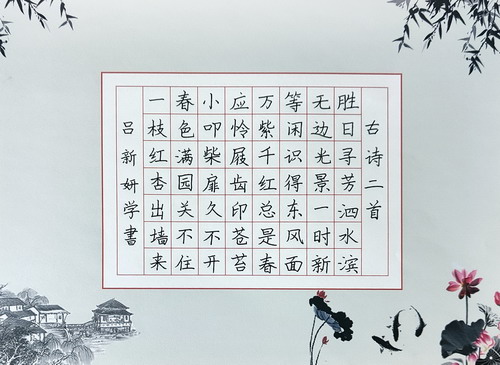 古诗二首
胜日寻芳泗水滨
无边光景一时新
等闲识得东风面
万紫千红总是春
应怜屐齿印苍苔
小叩柴扉久不开
春色满园关不住
一枝红杏出墙来
吕新妍学書